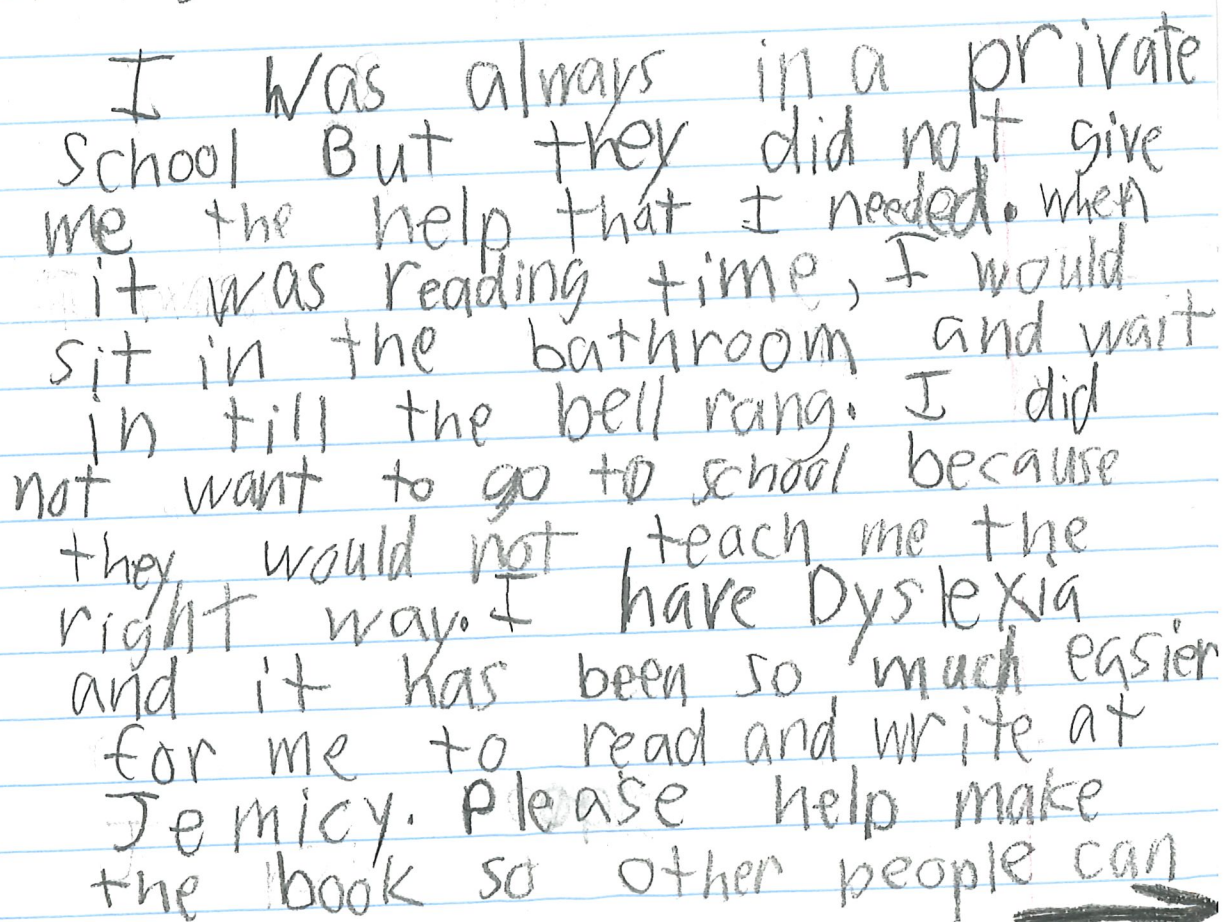 I was always in a private
school But they did not give
me the help that I needed. when
it was reading time, I would
sit in the bathroom and wait
in till the bell rang. I did
not want to go to school because
they would not teach me the
right way. I have Dyslexia
and it has been so much easier
for me to read and write at
Jemicy. Please help make
the book so other people can